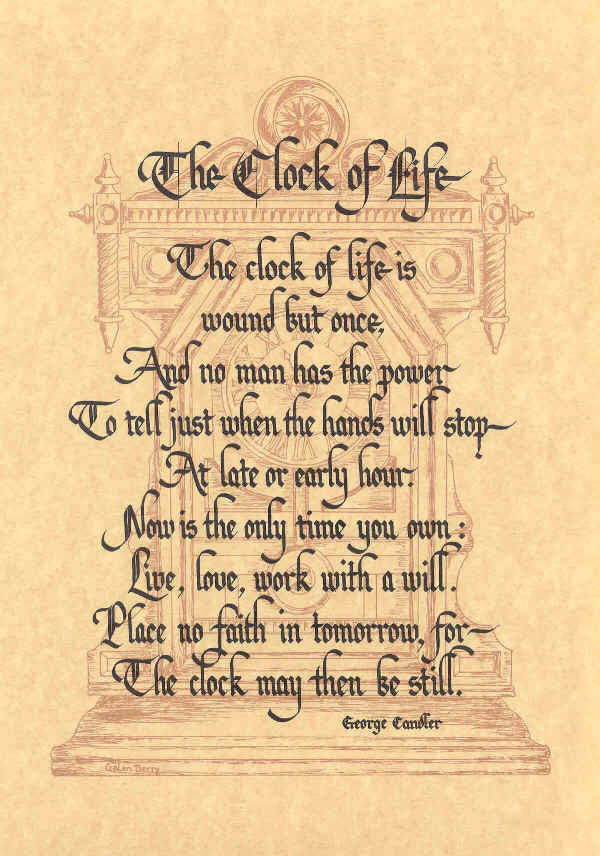 The Clock of Life
The clock of life is
wound but once,
And no man has the power
To tell just when the hands will stop
At late or early hour.
Now is the only time you own:
Live, love, work with a will.
Place no faith in tomorrow, for
The clock may then be still.
George Candler
Galen Berry